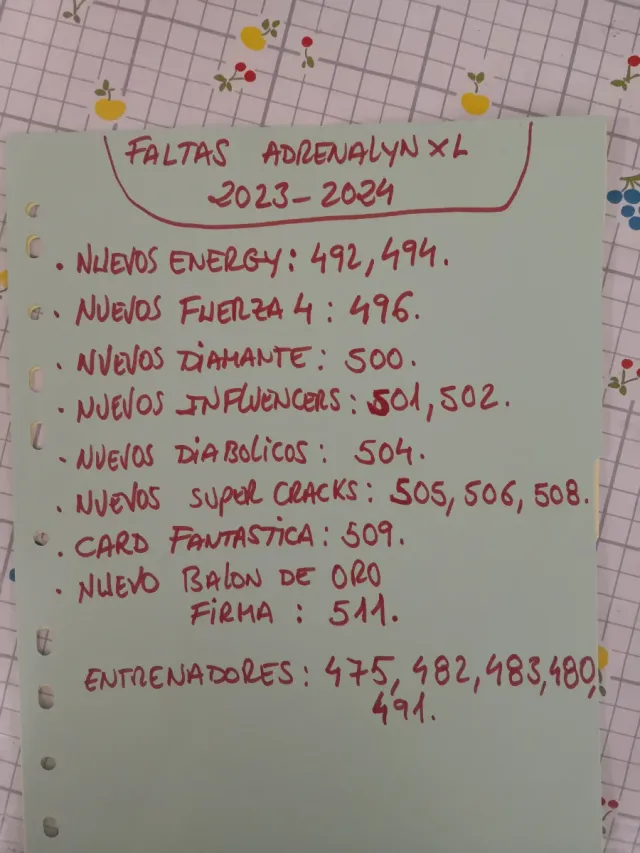 FALTAS ADRENALYN XL
2023-2024
. NUEVOS ENERGY: 492, 494.
. NUEVOS FUERZA 4: 496.
. NUEVOS DIAMANTE: 500.
. NUEVOS INFLUENCERS: 501, 502.
. NUEVOS DIABOLICOS: 504.
. NUEVOS SUPER CRACKS: 505, 506, 508.
. CARD FANTASTICA: 509.
. NUEVO BALON DE ORO
FIRMA: 511.
ENTRENADORES: 475, 482, 483, 480,
491.